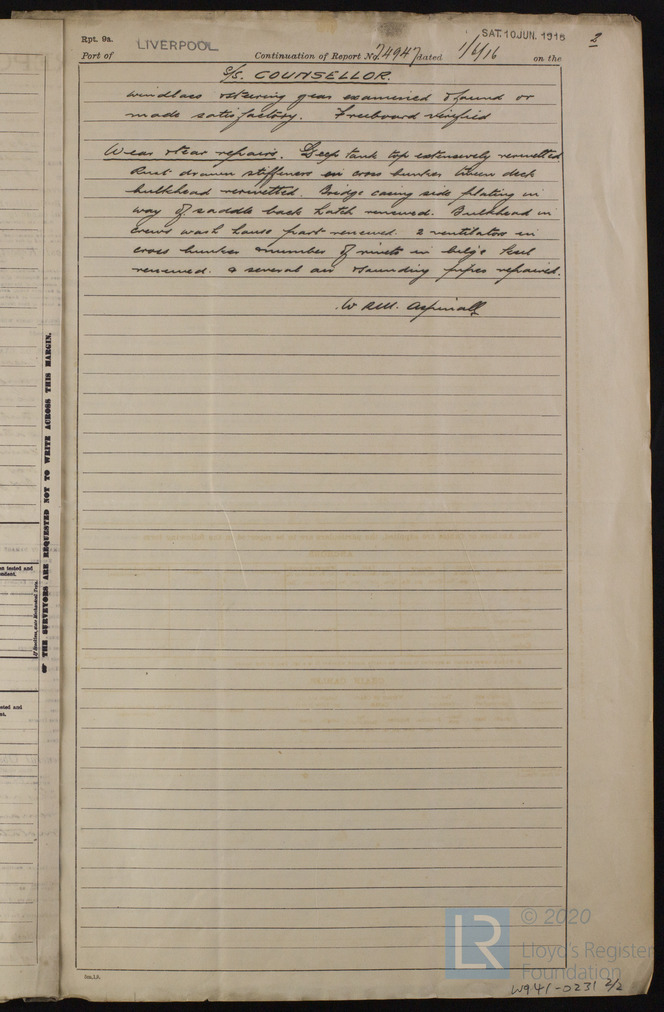 Rpt. 9a.
SAT. 10 JUN. 1916
2
Port of LIVERPOOL Continuation of Report No. 74947 dated 1/6/16 on the
S/S. COUNSELLOR.
windlass & steering gear examined & found or
made satisfactory. Freeboard verified
Wear & tear repairs. Deep tank top extensively reriveted
stiffeners in cross bunker tween deck
bulkhead reriveted. Bridge casing side plating in
way of saddle back hatch renewed. Bulkhead in
crews wash house part renewed. 2 ventilators in
cross bunker & number of rivets in bilge keel
renewed. & several air & sounding pipes repaired.
W Aspinall
OF THE SURVEYORS ARE REQUESTED NOT TO WRITE ACROSS THIS MARGIN.
LR © 2020
Lloyd's Register
Foundation
W941-0231 2/2